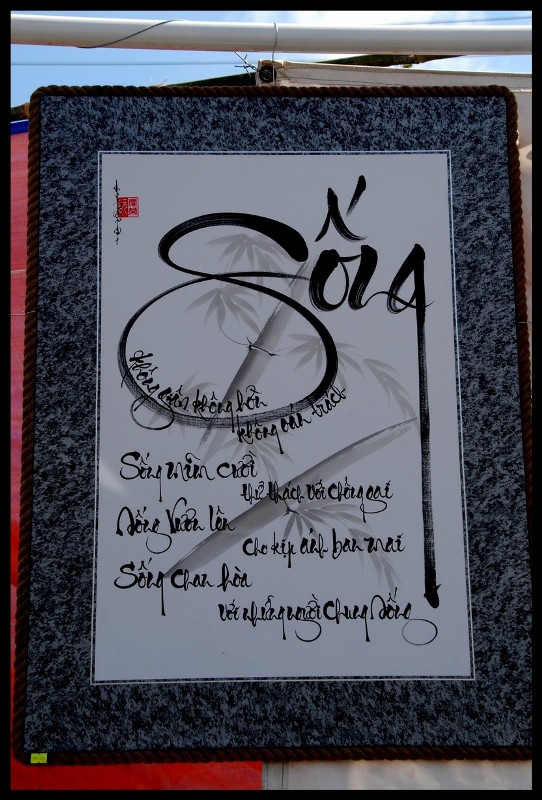 Sống
không giận không hờn
không oán trách
Sống mỉm cười
thử thách với chông gai
Sống vươn lên
cho kịp ánh ban mai
Sống chan hòa
với những người chung sống